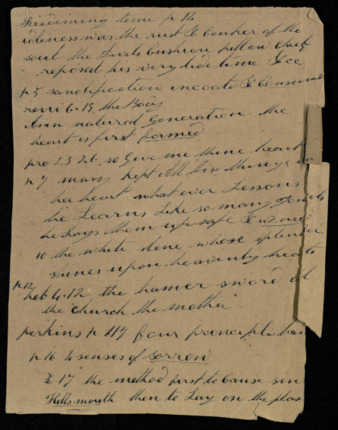 Redeeming time p 14
idleness was the rust & canker of the
soul the Devils Cushion pillow Chief
reposed his very tide time &ce
p 5 sanctification incoate & Consummate
rom 6.18. the Body
As in natural Generation the
heart is first formed
pro 23 26. so Give me thine heart
p 7 mary kept All his things in
her heart what ever Lessons
he Learns Like so many Jewels
he Lays them up safe
10 the white stone whose splendor
shines upon heavenly hearts
p 12
heb 4. 12 the hamer sword of
the Church the mother
perkins p 117 four principle
p 16 4 senses of
& 17 the method first to Cause sin
Hells mouth then to Lay on the plas